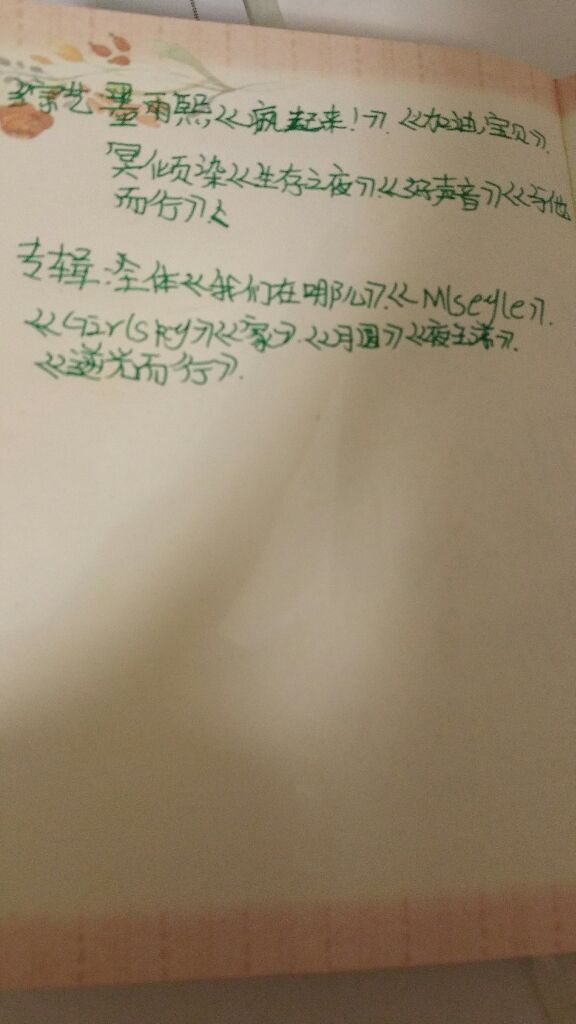 综艺 墨雨熙《疯起来!》.《加迪宝贝》.
冥倾染《生存之夜》《好声音》《与他
而行》
专辑:全体《我们在哪儿》.《Mlseyle》.
《GirlsRy》《家》.《月圆》《夜生活》.
《逆光而行》.